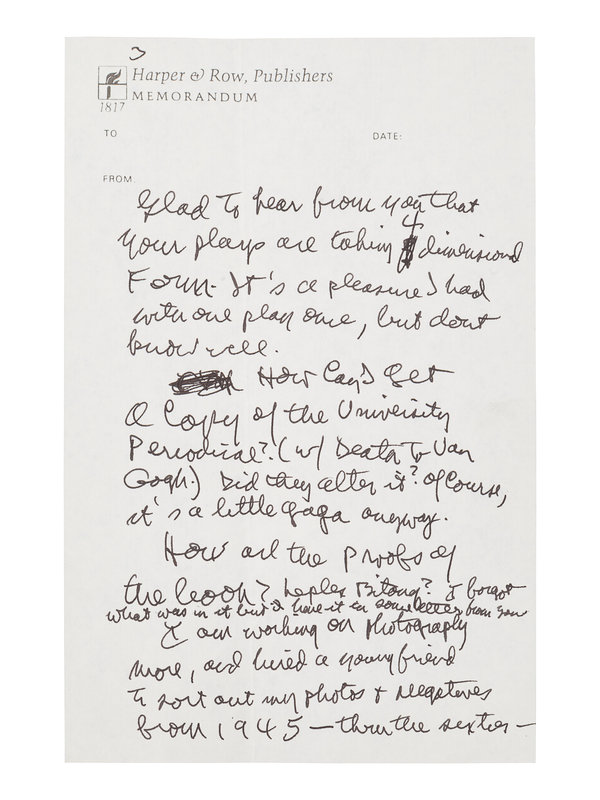 3
Harper & Row, Publishers
MEMORANDUM
1817
TO
DATE:
FROM
Glad to hear from you that
your plays are taking 4 dimensional
Form. It's a pleasure I had
with one play once, but dont
know well.
How Can I Get
A Copy of the University
Periodical? (w/ Death to Van
Gogh.) Did they alter it? Of Course,
it's a little gaga anyway.
How are the Proofs of
the book? I forgot
what was in it but I have it in some letter from you
I am working on photography
more, and hired a young friend
to sort out my photos + negatives
from 1945 — thru the sixties —